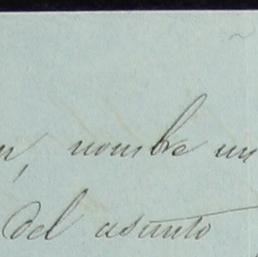 nombre un
del asunto